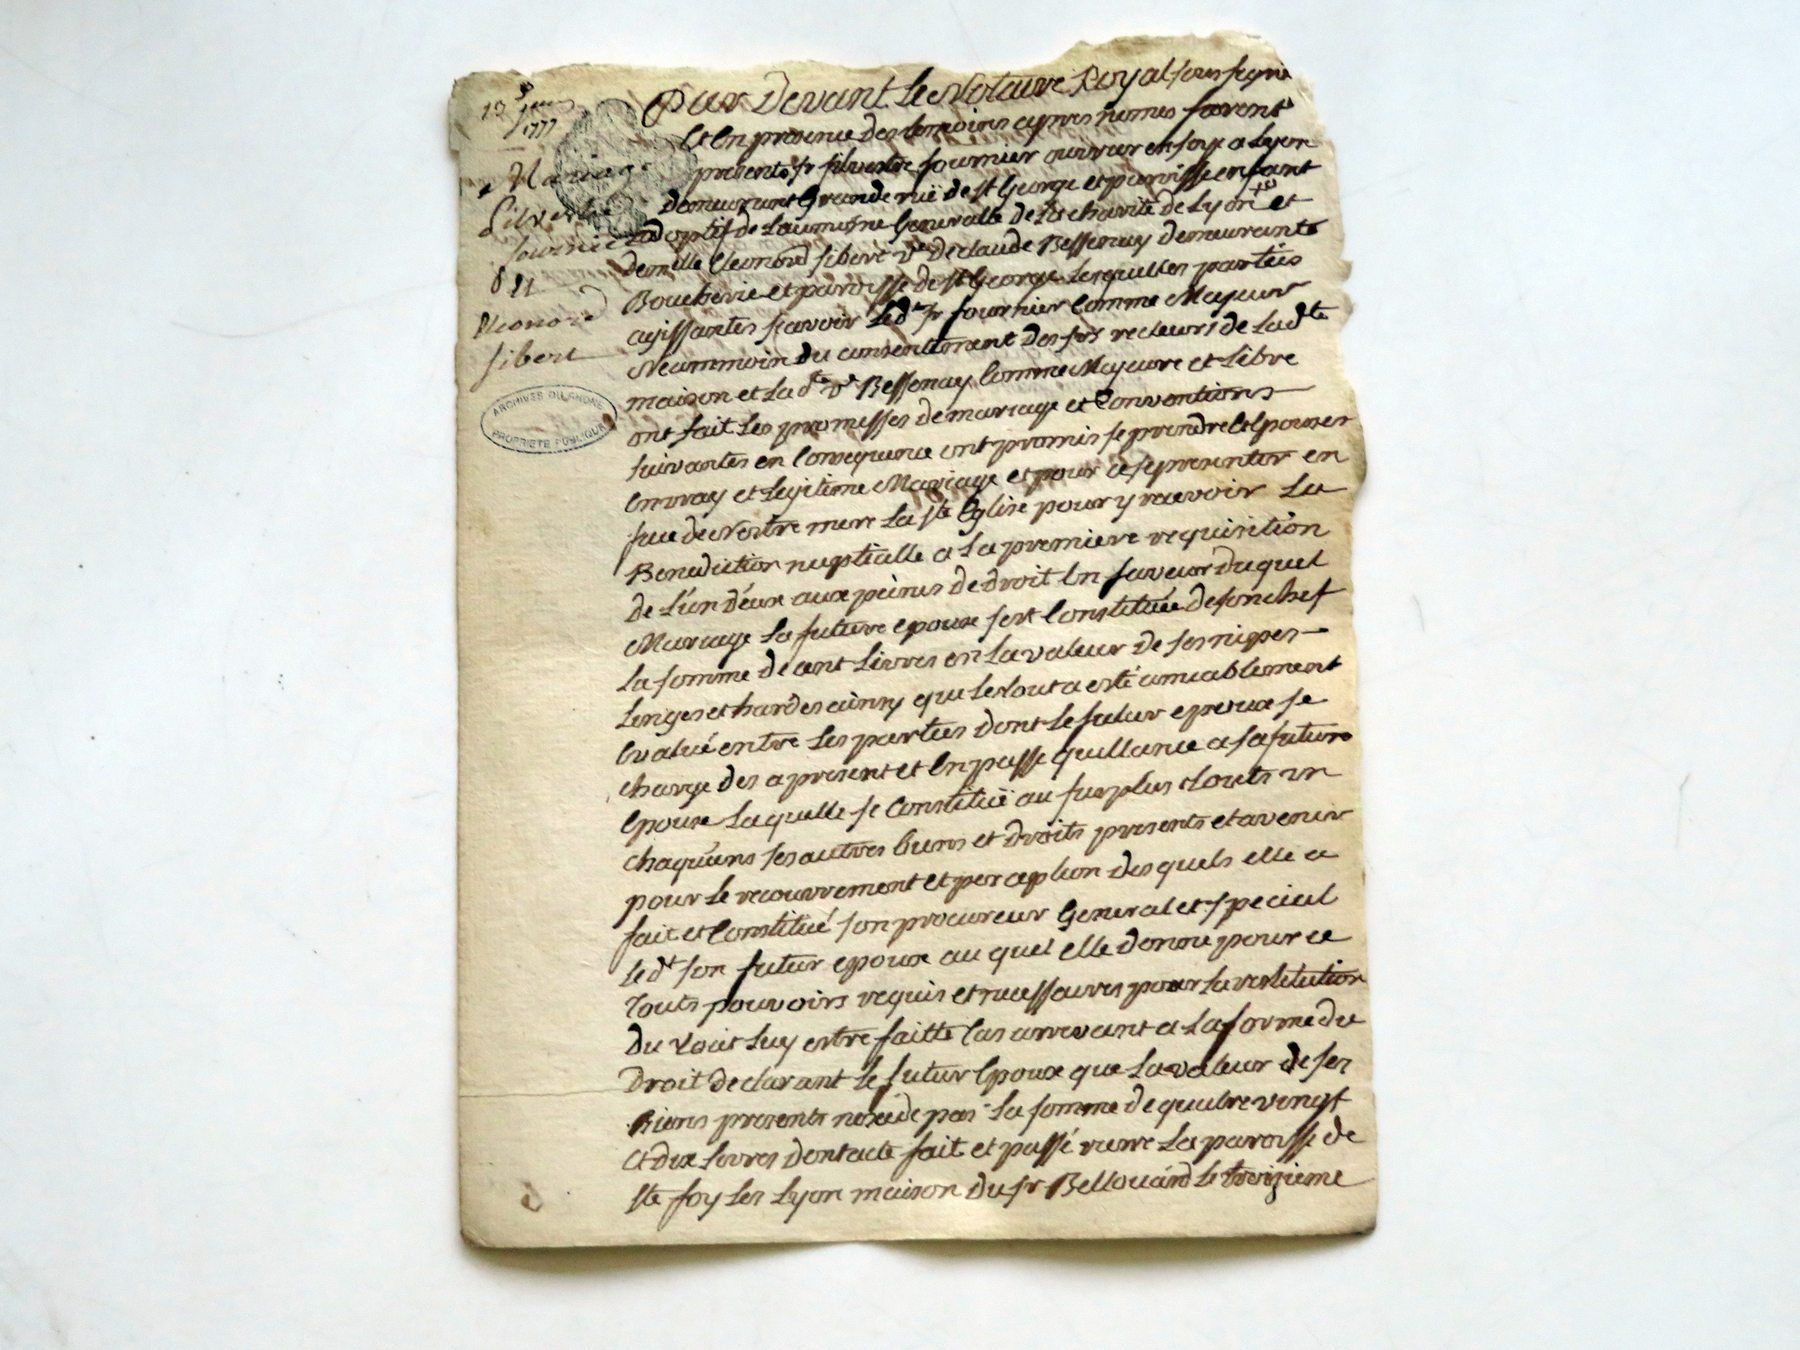 13 Janv
1777
Mariage
Silvestre
fournier
&
Eleonord
sibert
ARCHIVES DU RHONE
PROPRIÉTÉ PUBLIQUE
Par Devant Le Notaire Royal soussigné
Et En presence des temoins apres nomes furent
presents sr silvestre fournier ouvrier en soye a Lyon
demeurant Grande ruë de st George et paroisse enfant
adoptif de Laumône Generalle de La charité de Lyon et
demlle Eleonord sibert ve De claude Bessenay demeurante
Boucherie et paroisse de st George Lesquelles parties
agissantes sçavoir Ledt sr fournier Comme Majeur
Neammoin du consentement des srs recteurs de Ladte
maison et La dte ve Bessenay Comme Majeure et Libre
ont fait Les promesses de mariage et Conventions
suivantes en Consequence ont promis se prendre et Epouser
En vray et Legitime Mariage et pour ce se presenter en
face de Nostre mere La ste Eglise pour y recevoir La
Benediction nuptialle a La premiere requisition
de L'un d'eux aux peines de droit En faveur Duquel
Mariage La future epouse sest Constituée de son chef
La somme de cent Livres en La valeur de ses nipes
Linges et hardes ainsy que Le tout a esté amiablement
Evalué entre Les parties dont Le futur epoux se
charge des a present et En passe quittance a sa future
Epouse Laquelle se Constituë au surplus touts un
chaqu'uns ses autres biens et droits presents et avenir
pour Le recouvrement et perception desquels elle a
fait et Constitué son procureur General et special
Ledt son futur epoux au quel elle donne pour ce
touts pouvoirs requis et necessaires pour La restitution
du tout Luy estre faitte Cas arrivant a La forme du
Droit declarant Le futur Epoux que La valeur de ses
Biens presents n'excede pas La somme de quatre vingt
et dix Livres dont acte fait et passé riere La paroisse de
ste foy Les Lyon maison du sr Bellouard Le treizieme